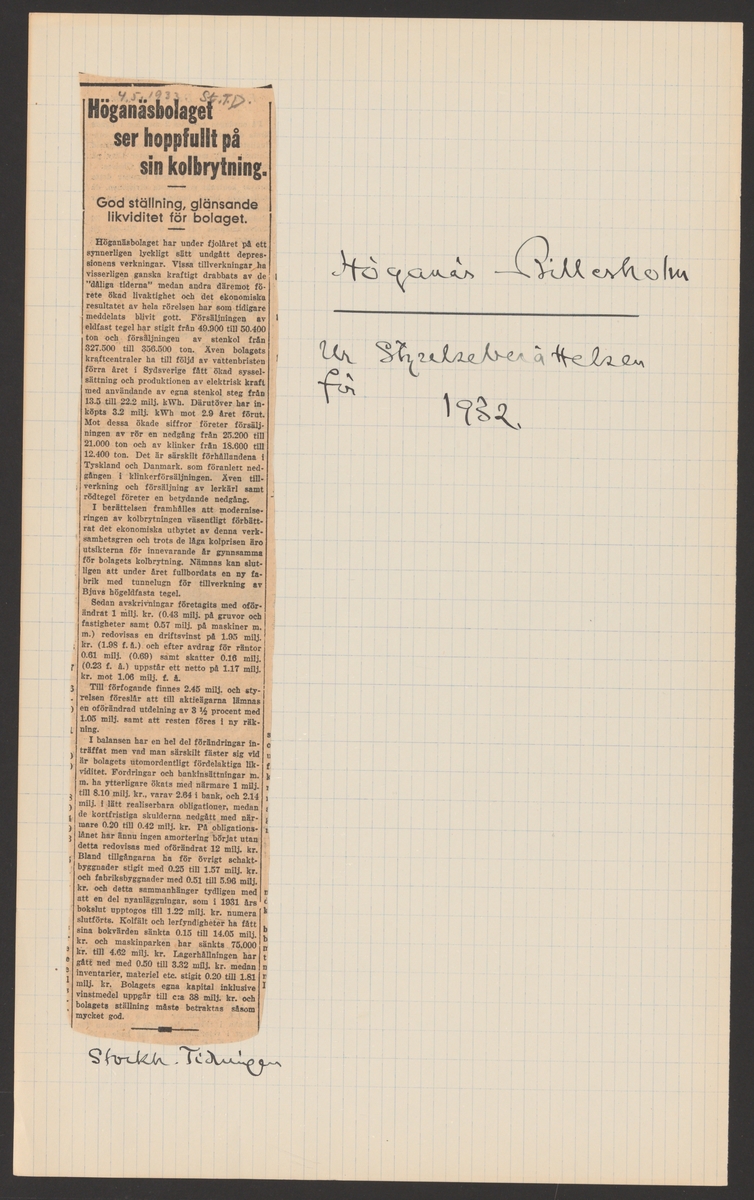 4.5.1933. St.T.D.
Höganäsbolaget
ser hoppfullt på
sin kolbrytning.
God ställning, glänsande
likviditet för bolaget.
Höganäsbolaget har under fjolåret på ett
synnerligen lyckligt sätt undgått depres-
sionens verkningar. Vissa tillverkningar ha
visserligen ganska kraftigt drabbats av de
"dåliga tiderna" medan andra däremot fö-
rete ökad livaktighet och det ekonomiska
resultatet av hela rörelsen har som tidigare
meddelats blivit gott. Försäljningen av
eldfast tegel har stigit från 49.900 till 50.400
ton och försäljningen av stenkol från
327.500 till 356.500 ton. Även bolagets
kraftcentraler ha till följd av vattenbristen
förra året i Sydsverige fått ökad syssel-
sättning och produktionen av elektrisk kraft
med användande av egna stenkol steg från
13.5 till 22.2 milj. kWh. Därutöver har in-
köpts 3.2 milj. kWh mot 2.9 året förut.
Mot dessa ökade siffror företer försälj-
ningen av rör en nedgång från 25.200 till
21.000 ton och av klinker från 18.600 till
12.400 ton. Det är särskilt förhållandena i
Tyskland och Danmark, som föranlett ned-
gången i klinkerförsäljningen. Även till-
verkning och försäljning av lerkärl samt
rödtegel företer en betydande nedgång.
I berättelsen framhålles att modernise-
ringen av kolbrytningen väsentligt förbätt-
rat det ekonomiska utbytet av denna verk-
samhetsgren och trots de låga kolprisen äro
utsikterna för innevarande år gynnsamma
för bolagets kolbrytning. Nämnas kan slut-
ligen att under året fullbordats en ny fa-
brik med tunnelugn för tillverkning av
Bjuvs högeldfasta tegel.
Sedan avskrivningar företagits med oför-
ändrat 1 milj. kr. (0.43 milj. på gruvor och
fastigheter samt 0.57 milj. på maskiner m.
m.) redovisas en driftsvinst på 1.95 milj.
kr. (1.98 f. å.) och efter avdrag för räntor
0.61 milj. (0.69) samt skatter 0.16 milj.
(0.23 f. å.) uppstår ett netto på 1.17 milj.
kr. mot 1.06 milj. f. å.
Till förfogande finnes 2.45 milj. och sty-
relsen föreslår att till aktieägarna lämnas
en oförändrad utdelning av 3 ½ procent med
1.05 milj. samt att resten föres i ny räk-
ning.
I balansen har en hel del förändringar in-
träffat men vad man särskilt fäster sig vid
är bolagets utomordentligt fördelaktiga lik-
viditet. Fordringar och bankinsättningar m.
m. ha ytterligare ökats med närmare 1 milj.
till 8.10 milj. kr., varav 2.64 i bank, och 2.14
milj. i lätt realiserbara obligationer, medan
de kortfristiga skulderna nedgått med när-
mare 0.20 till 0.42 milj. kr. På obligations-
lånet har ännu ingen amortering börjat utan
detta redovisas med oförändrat 12 milj. kr.
Bland tillgångarna ha för övrigt schakt-
byggnader stigit med 0.25 till 1.57 milj. kr.
och fabriksbyggnader med 0.51 till 5.96 milj.
kr. och detta sammanhänger tydligen med
att en del nyanläggningar, som i 1931 års
bokslut upptogos till 1.22 milj. kr. numera
slutförts. Kolfält och lerfyndigheter ha fått
sina bokvärden sänkta 0.15 till 14.05 milj.
kr. och maskinparken har sänkts 75.000
kr. till 4.62 milj. kr. Lagerhållningen har
gått ned med 0.50 till 3.32 milj. kr. medan
inventarier, materiel etc. stigit 0.20 till 1.81
milj. kr. Bolagets egna kapital inklusive
vinstmedel uppgår till c:a 38 milj. kr. och
bolagets ställning måste betraktas såsom
mycket god.
Stockh. Tidningen
Höganäs Billesholm
Ur Styrelseberättelsen
för
1932.